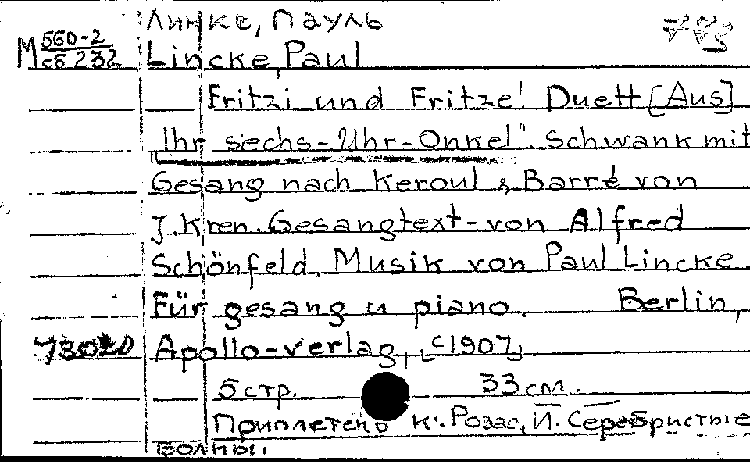 Линке, Пауль
М 560-2
сб 232
Lincke, Paul
Fritzi und Fritze! Duett [Aus]
"Ihr sechs-Uhr-Onkel". Schwank mit
Gesang nach Keroul & Barré von
J. Kren. Gesangtext-von Alfred
Schönfeld. Musik von Paul Lincke
Für gesang u piano. Berlin,
Apollo-verlag, [c1907]
5 стр. 33 см.
Приплетено к: Розас, И. Серебристые
волны.